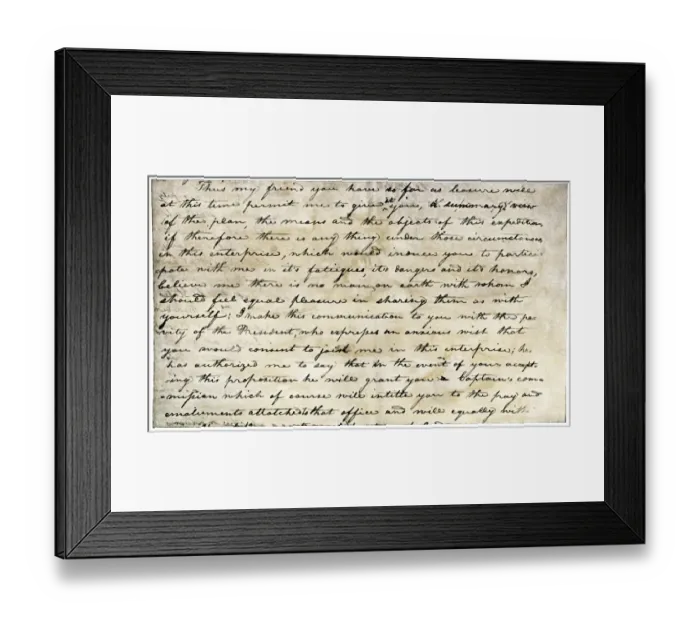 Thus my friend you have so far as leasure will
at this time permit me to give it you, a summary view
of the plan, the means and the objects of this expedition
if therefore there is any thing under those circumstances
in this enterprise, which would induce you to partici=
pate with me in it's fatiegues, it's dangers and it's honors,
believe me there is no man on earth with whom I
should feel equal pleasure in sharing them as with
yourself; I make this communication to you with the pr
vity of the President, who expresses an anxious wish that
you would consent to join me in this enterprise; he
has authorized me to say that in the event of your accept-
ing this proposition he will grant you a Captain's com
mission which of course will intitle you to the pay and
emoluments attatched to that office and will equally with